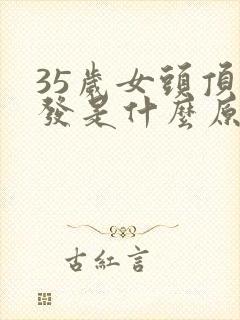 35歲女頭頂
發是什麼原
古紅言